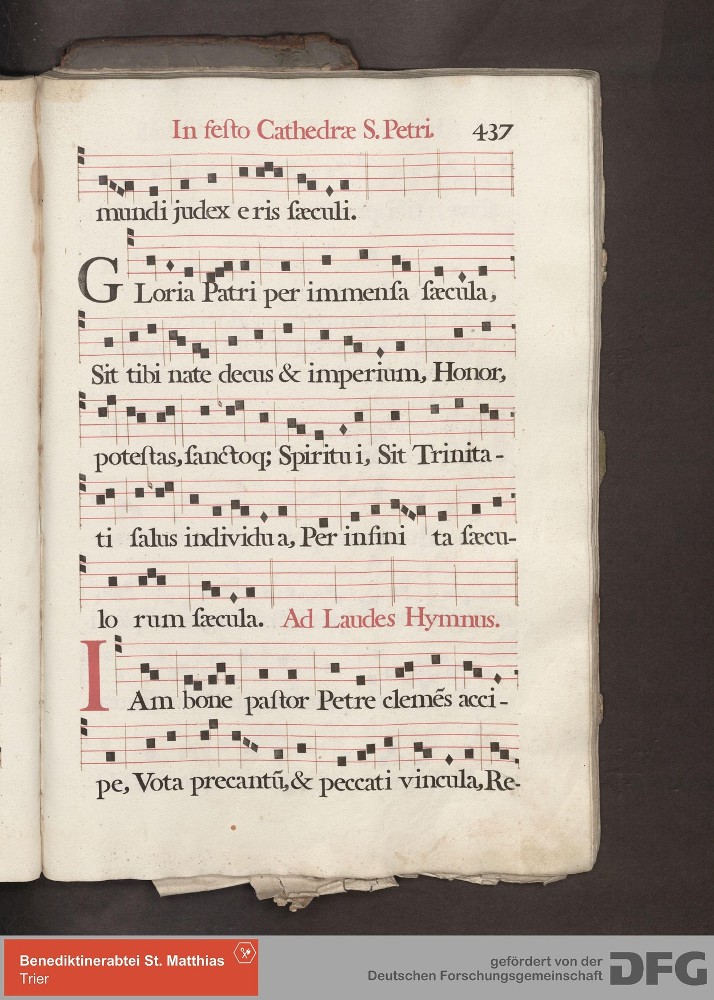 In festo Cathedræ S. Petri. 437
mundi judex eris sæculi.
GLoria Patri per immensa sæcula,
Sit tibi nate decus & imperium, Honor,
potestas, sanctoq; Spiritui, Sit Trinita-
ti salus individua, Per infinita sæcu-
lorum sæcula. Ad Laudes Hymnus.
IAm bone pastor Petre clemẽs acci-
pe, Vota precantũ, & peccati vincula, Re-
Benediktinerabtei St. Matthias
Trier
gefördert von der
Deutschen Forschungsgemeinschaft
DFG